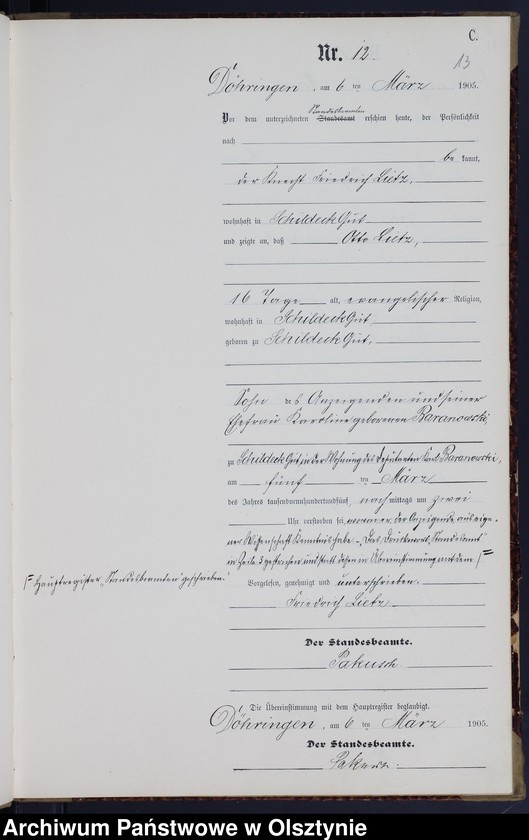 C.
Nr. 12.
13
Döhringen, am 6 ten März 1905.
Standesbeamten
Vor dem unterzeichneten Standesamt erschien heute, der Persönlichkeit
nach
be kannt,
der Knecht Friedrich Lietz,
wohnhaft in Schildeck Gut
und zeigte an, daß Otto Lietz,
16 Tage alt, evangelischer Religion,
wohnhaft in Schildeck Gut
geboren zu Schildeck Gut,
Sohn des Anzeigenden und seiner
Ehefrau Karoline geborenen Baranowski,
zu Schildeck Gut in der Wohnung des Deputanten Karl Baranowski,
am fünf ten März
des Jahres tausendneunhundertundfünf, nach mittags um zwei
Uhr verstorben sei, wovon er, der Anzeigende, aus eige-
ner Wissenschaft Kenntnis habe. Das Druckwort "Standesamt"
in Zeile 3 gestrichen und statt dessen in Übereinstimmung mit dem /=
/= Hauptregister "Standesbeamten" geschrieben.
Vorgelesen, genehmigt und unterschrieben.
Friedrich Lietz
Der Standesbeamte.
Pakusch
Die Übereinstimmung mit dem Hauptregister beglaubigt.
Döhringen, am 6 ten März 1905.
Der Standesbeamte.
Pakusch.
Archiwum Państwowe w Olsztynie